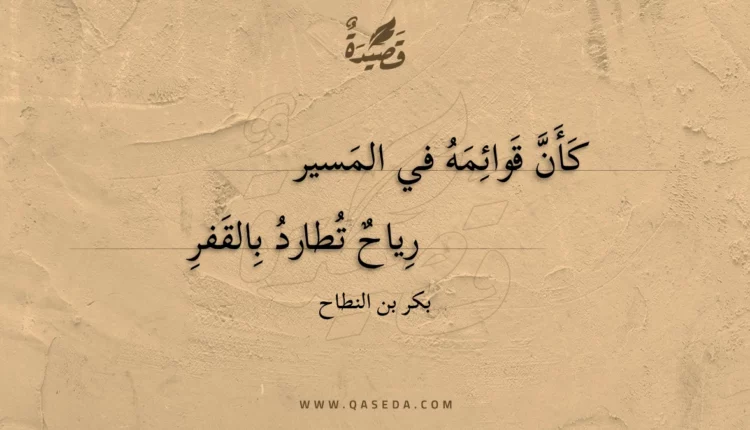 قَصِيدَةٌ
كَأَنَّ قَوائِمَهُ في المَسير
رِياحٌ تُطارِدُ بِالقَفرِ
بكر بن النطاح
WWW.QASEDA.COM